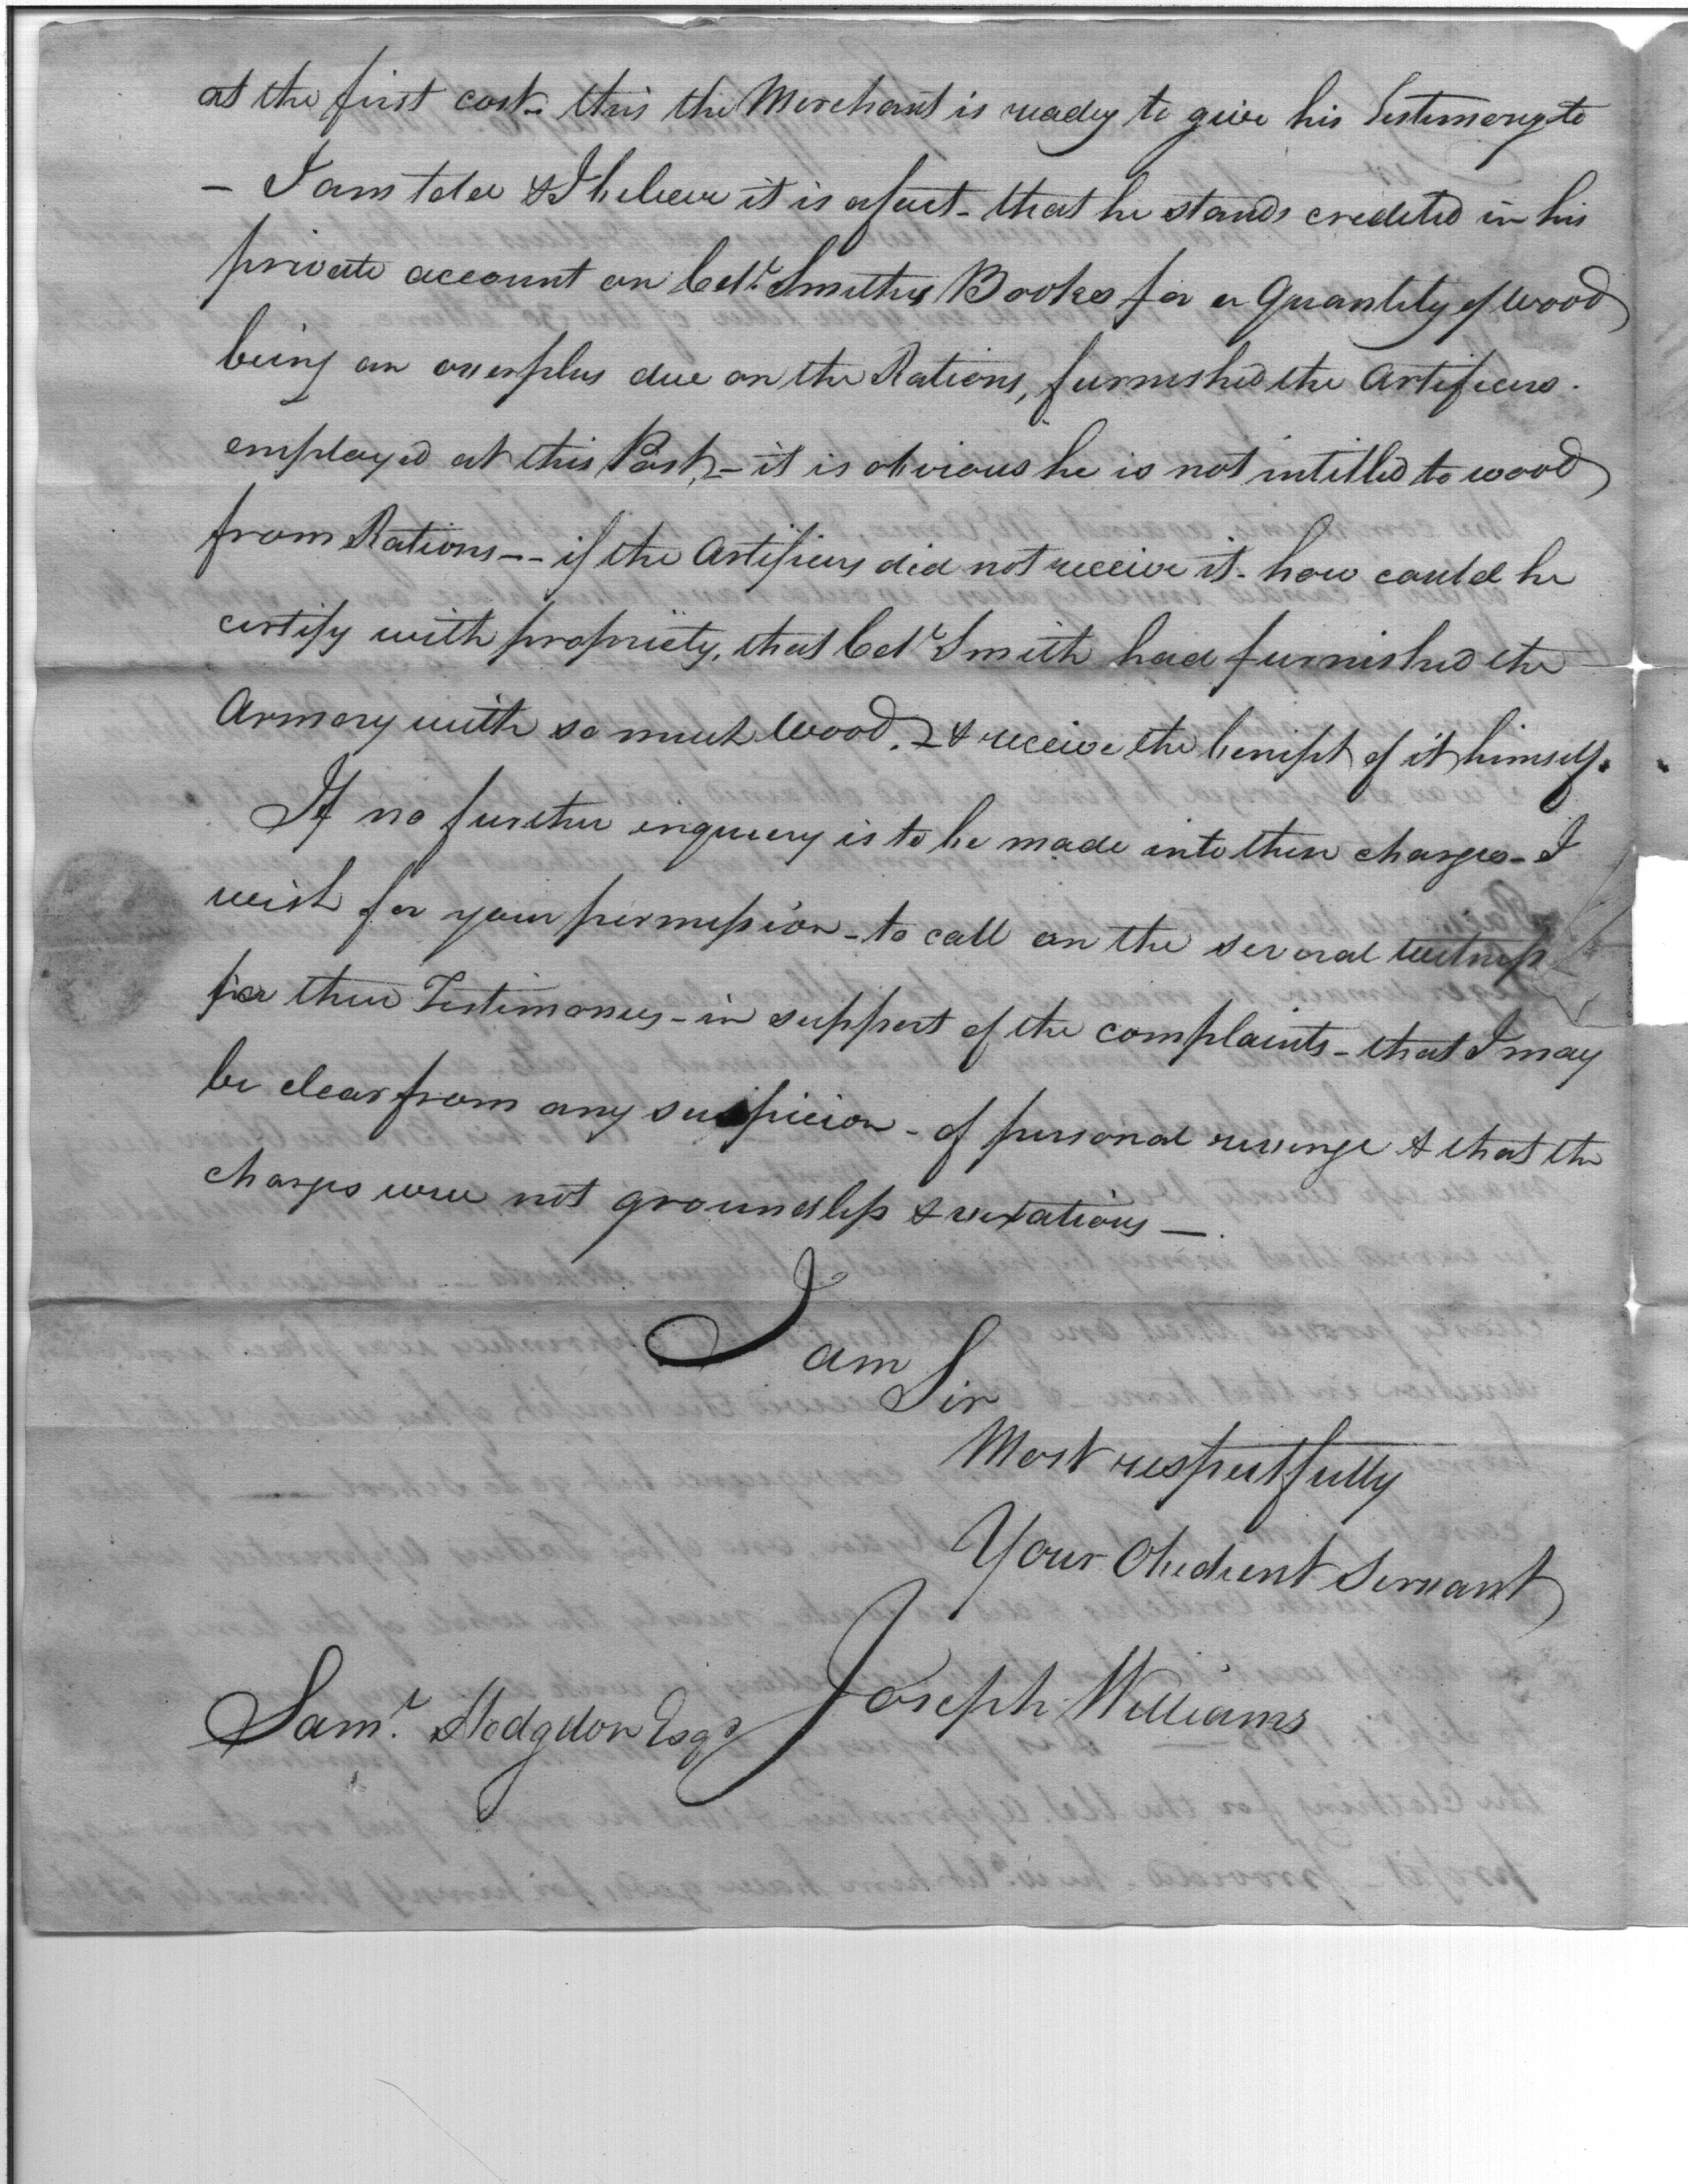 at the first cost - this the Merchant is ready to give his Testimony to
- I am told & I believe it is a fact - that he stands credited in his
private account on Colr. Smiths Books for a Quantity of wood
being an overplus due on the Rations, furnished the Artificers.
employed at this Post, - it is obvious he is not intitled to wood
from Rations -- if the Artificers did not receive it - how could he
certify with propriety, that Colr Smith had furnished the
Armory with so much wood, - & receive the benifit of it himself.
If no further inquiery is to be made into these charges - I
wish for your permission - to call on the several witness
for their Testimonies - in support of the complaints - that I may
be clear from any suspicion - of personal revenge & that the
charges were not groundless & vexatious -
I am
Sir
Most respectfully
Your Obedient Servant
Joseph Williams
Saml. Hodgdon Esqr